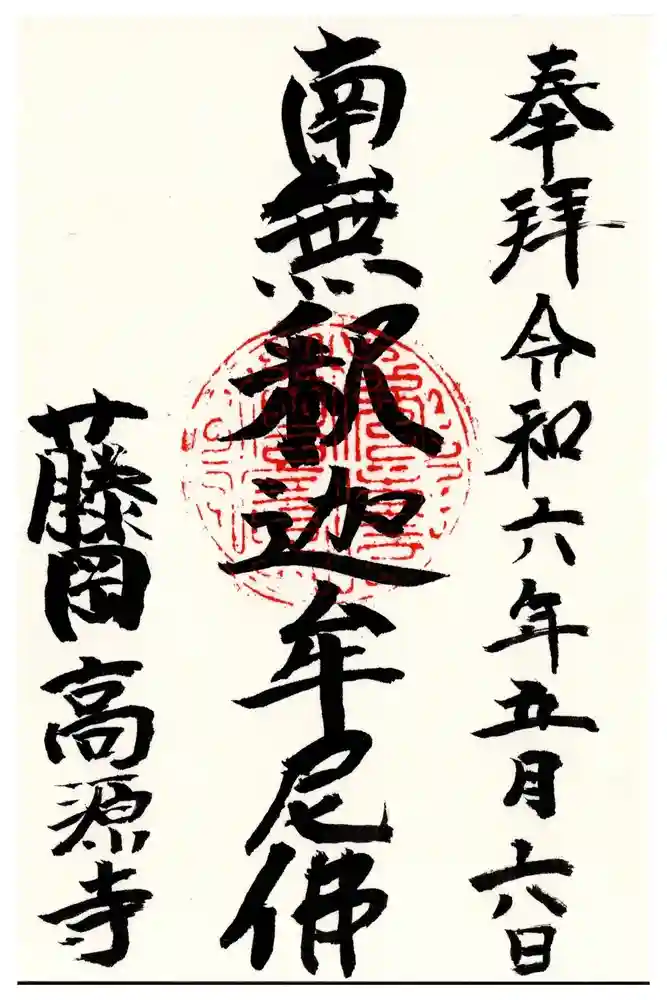 奉拝 令和六年五月六日
南無釈迦牟尼佛
藤岡 高源寺